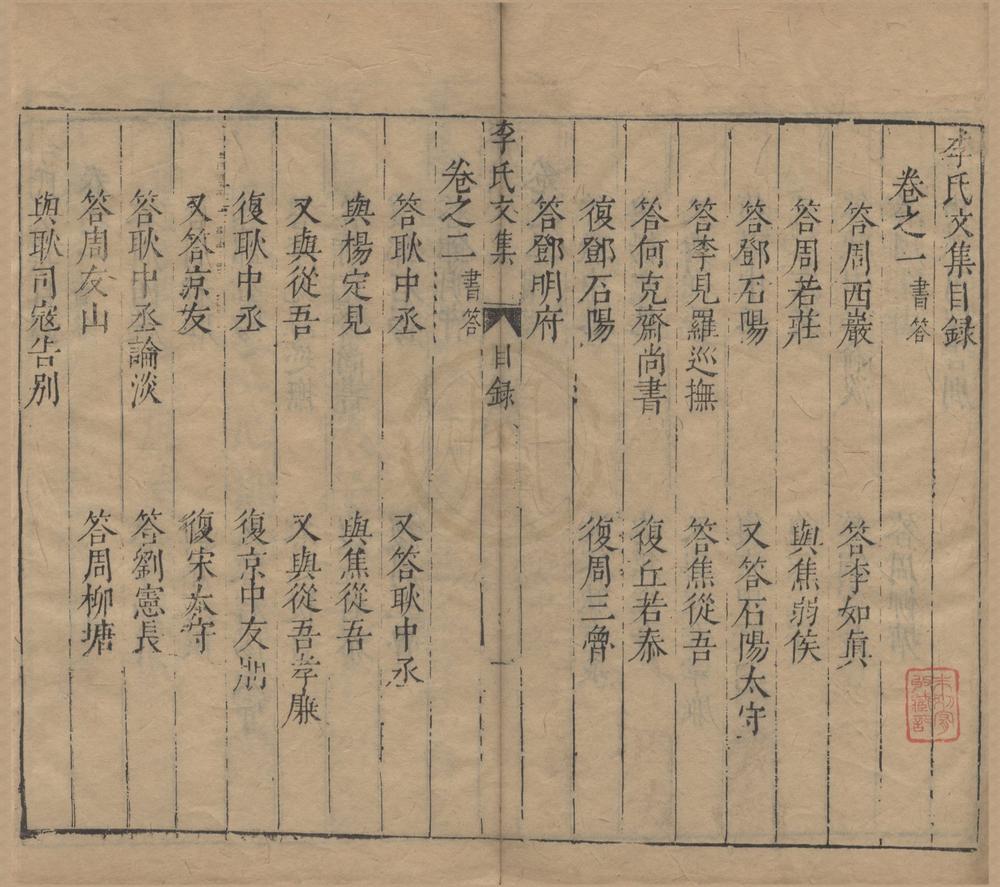 李氏文集目録
卷之一 書答
答周西巖 答李如眞
答周若莊 與焦弱侯
答鄧石陽 又答石陽太守
答李見羅巡撫 答焦從吾
答何克齋尚書 復丘若泰
復鄧石陽 復周三魯
答鄧明府
李氏文集 目録 一
卷之二 書答
答耿中丞 又答耿中丞
與楊定見 與焦從吾
又與從吾 又與從吾孝廉
復耿中丞 復京中友朋
又答京友 復宋太守
答耿中丞論淡 答劉憲長
答周友山 答周柳塘
與耿司寇告別